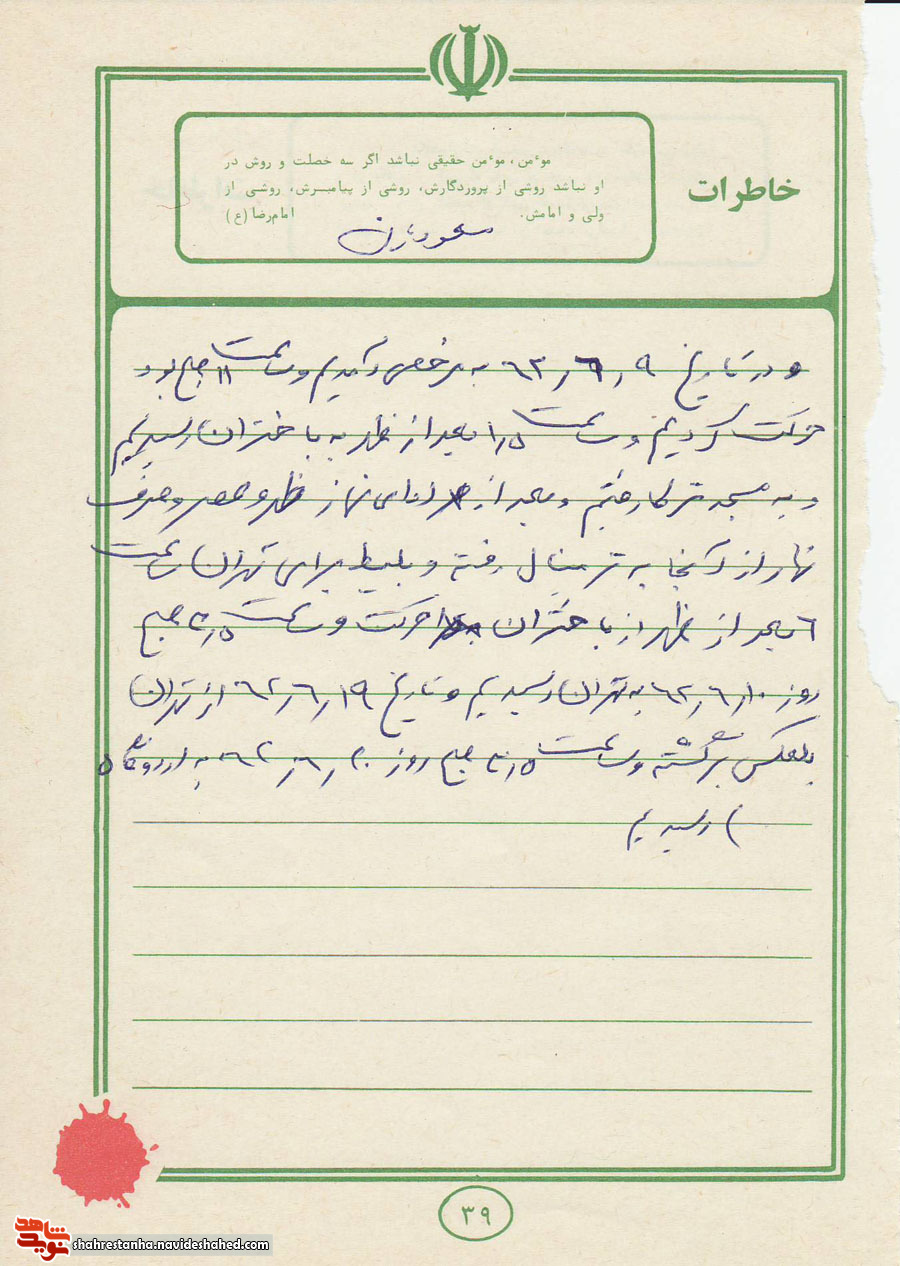 خاطرات
موءمن، موءمن حقیقی نباشد اگر سه خصلت و روش در
او نباشد روشی از پروردگارش، روشی از پیامبرش، روشی از
ولی و امامش. امام‌رضا (ع)
و در تاریخ ۶۲٫۶٫۹ به مرخصی آمدیم و ساعت ۱۱ صبح بود
حرکت کردیم و ساعت ۱٫۵ بعد از ظهر به باختران رسیدیم
و به مسجد ترکها رفتیم و بعد از ادای نماز ظهر و عصر و صرف
نهار از آنجا به ترمینال رفته و بلیط برای تهران ساعت
۶ بعد از ظهر از باختران حرکت و ساعت ۴٫۵ صبح
روز ۶۲٫۶٫۱۰ به تهران رسیدیم و تاریخ ۶۲٫۶٫۱۹ از تهران
بلعکس برگشته و ساعت ۴٫۵ صبح روز ۶۲٫۶٫۲۰ به اردوگاه
رسیدیم
۳۹
نوید شاهد
shahrestanha.navideshahed.com